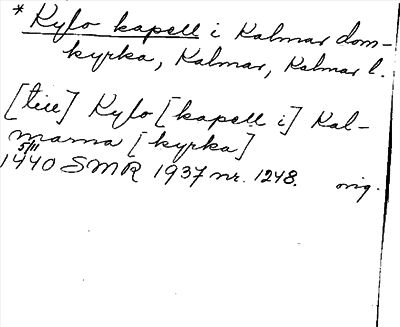 * Kylo kapell i Kalmar dom-
kyrka, Kalmar, Kalmar l.
[till] Kylo [kapell i] Kal-
marna [kyrka]
5/11
1440 SMR 1937 nr. 1248. orig.